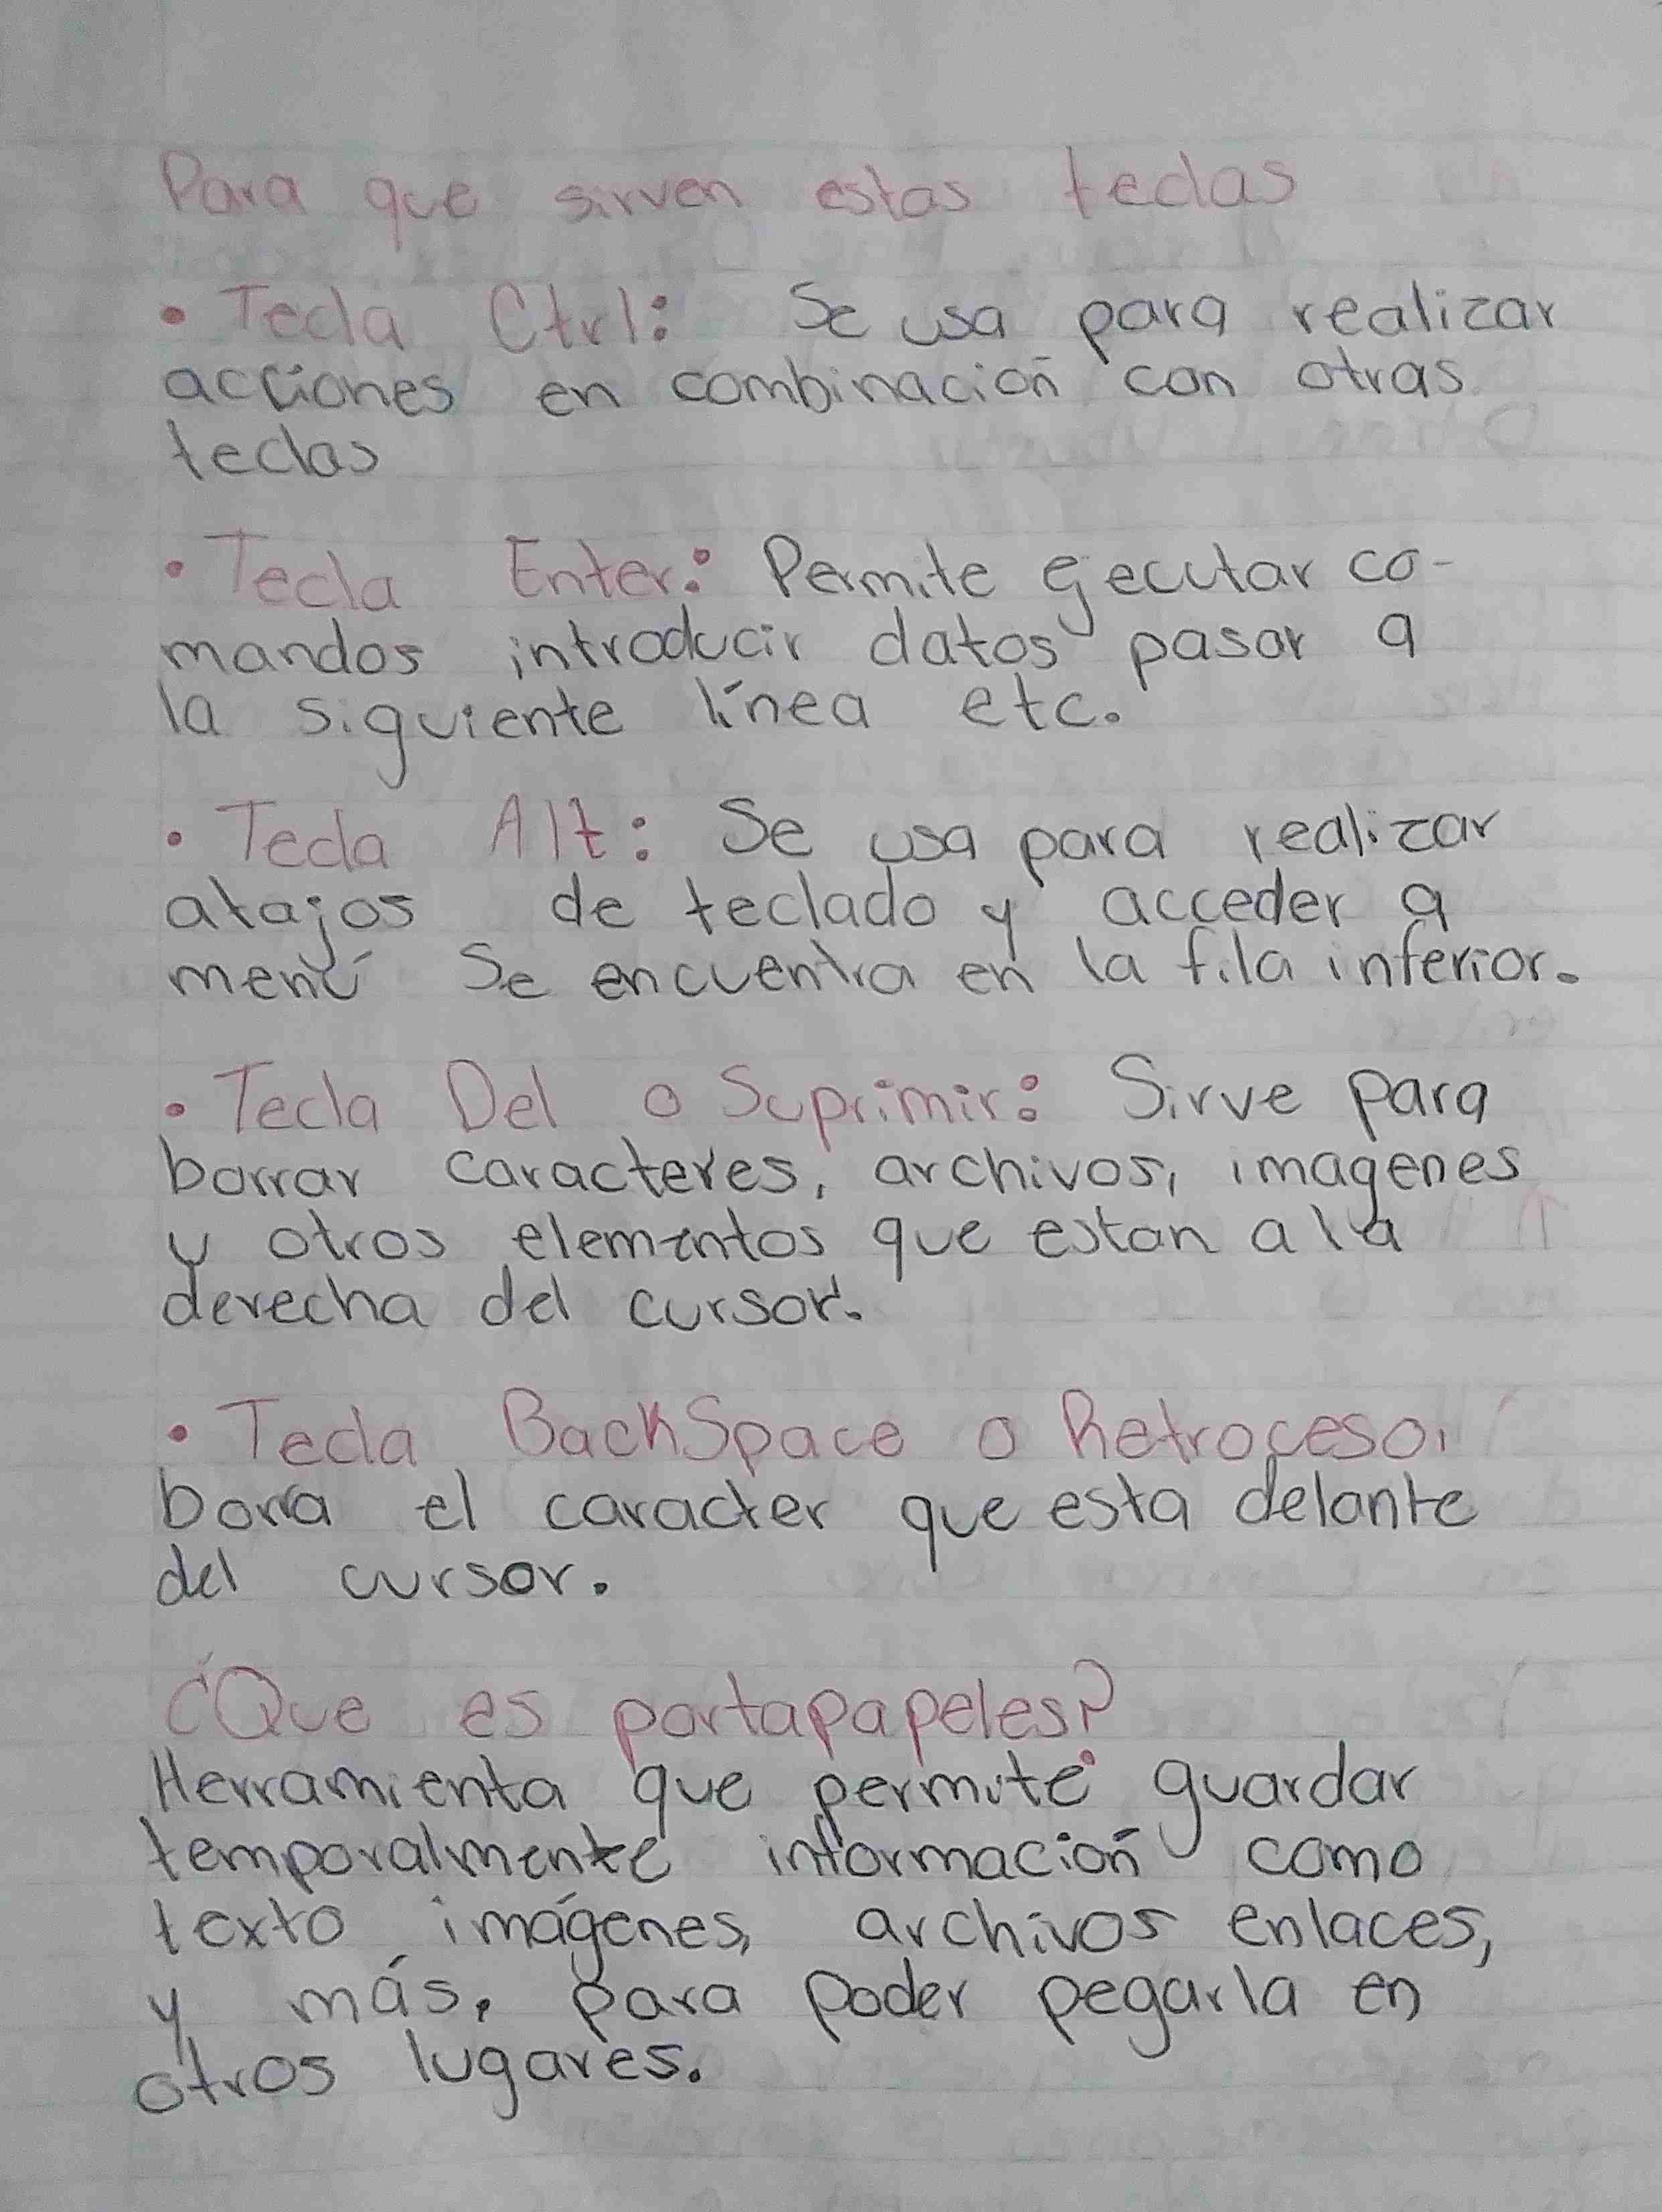 Para que sirven estas teclas
• Tecla Ctrl: Se usa para realizar
acciones en combinación con otras
teclas
• Tecla Enter: Permite ejecutar co-
mandos introducir datos pasar a
la siguiente línea etc.
• Tecla Alt: Se usa para realizar
atajos de teclado y acceder a
menú Se encuentra en la fila inferior.
• Tecla Del o Suprimir: Sirve para
borrar caracteres, archivos, imagenes
y otros elementos que estan a la
derecha del cursor.
• Tecla BackSpace o Retroceso,
borra el caracter que esta delante
del cursor.
¿Que es portapapeles?
Herramienta que permite guardar
temporalmente información como
texto, imágenes, archivos enlaces,
y más, para poder pegarla en
otros lugares.